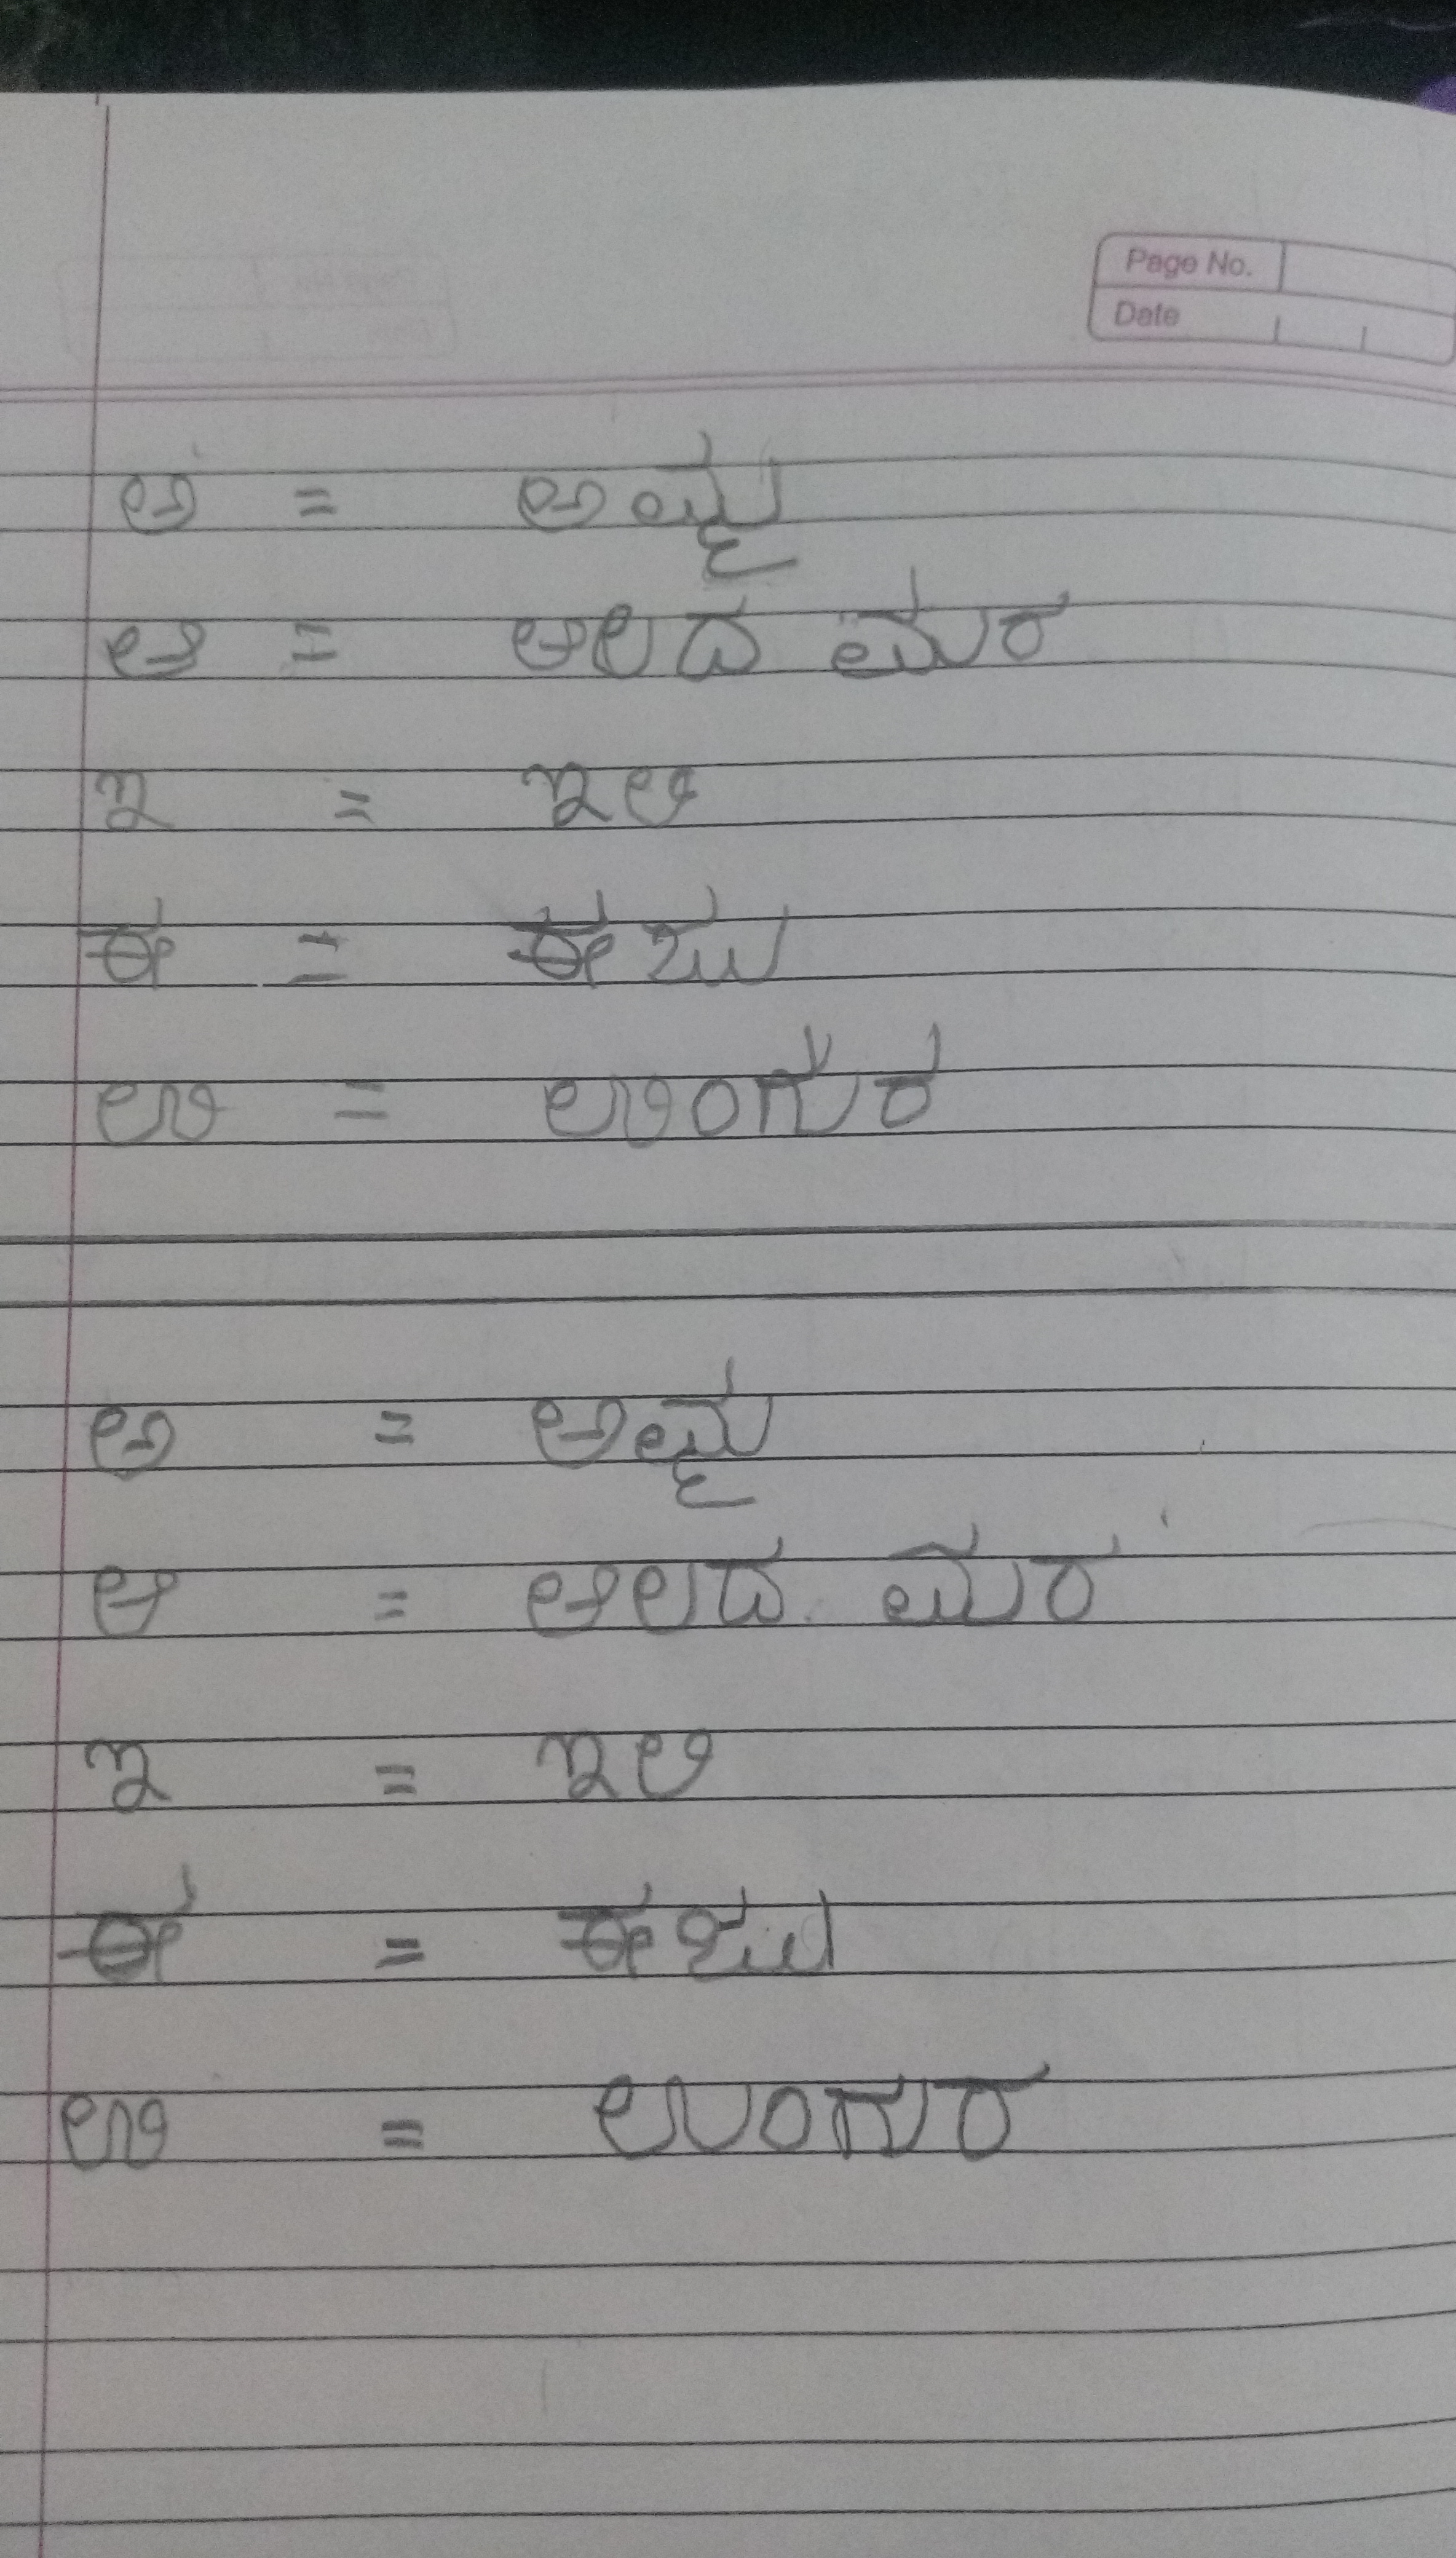 Page No.
Date
ಅ = ಅಮ್ಮ
ಆ = ಆಲದ ಮರ
ಇ = ಇಲಿ
ಈ = ಈಜು
ಉ = ಉಂಗುರ
ಅ = ಅಮ್ಮ
ಆ = ಆಲದ ಮರ
ಇ = ಇಲಿ
ಈ = ಈಜು
ಉ = ಉಂಗುರ